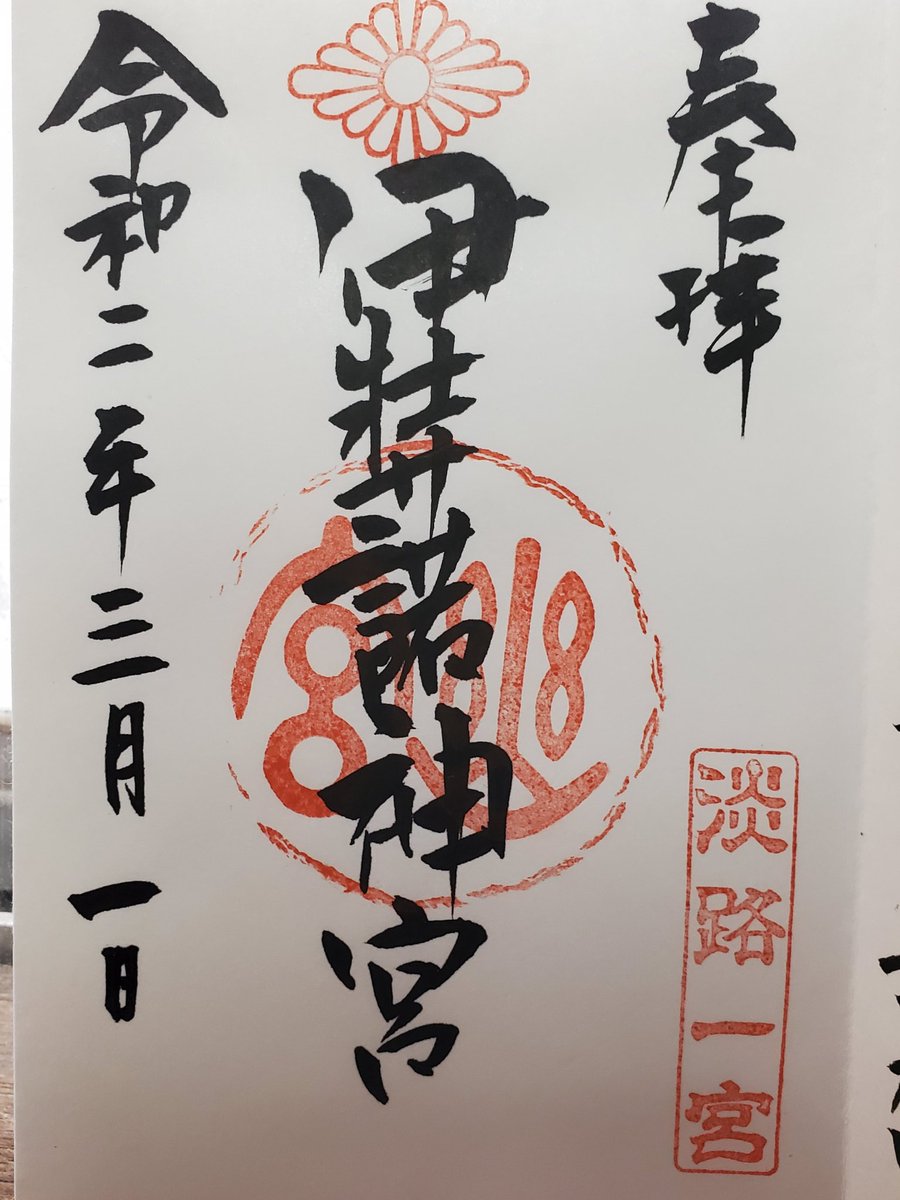 奉拝
淡路一宮
伊弉諾神宮
令和二年三月一日